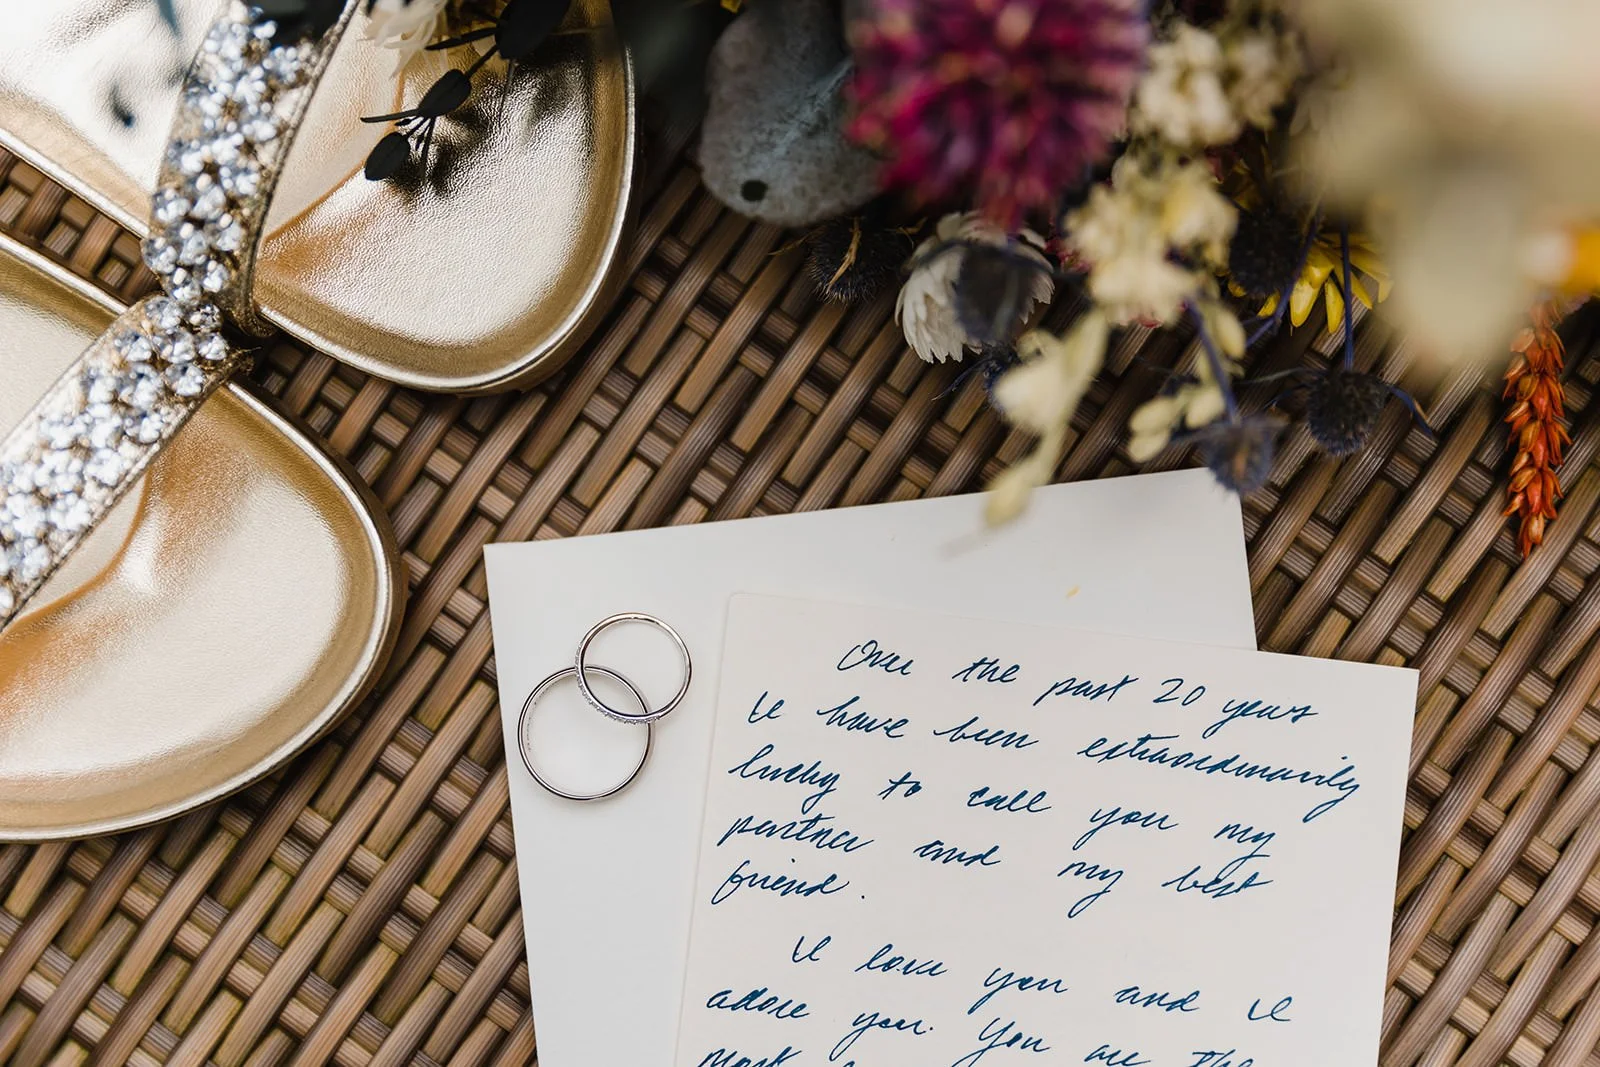 Over the past 20 years
I have been extraordinarily
lucky to call you my
partner and my best
friend.
I love you and I
adore you. You are the
most